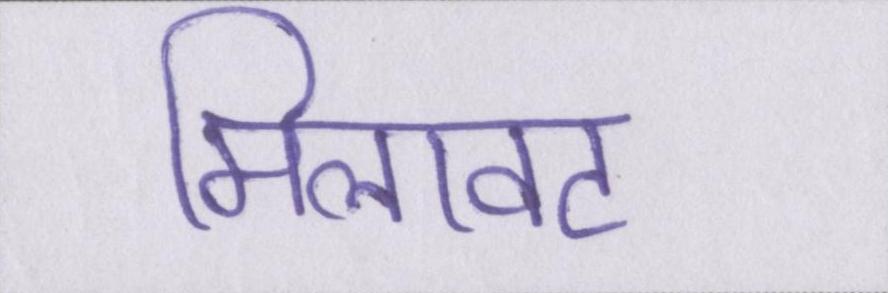 मिलावट